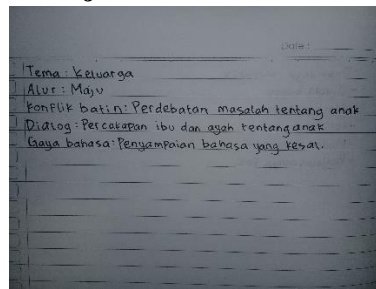 Date:
Tema: Keluarga
Alur: Maju
Konflik batin: Perdebatan masalah tentang anak
Dialog: Percakapan ibu dan ayah tentang anak
Gaya bahasa: Penyampaian bahasa yang kesal.